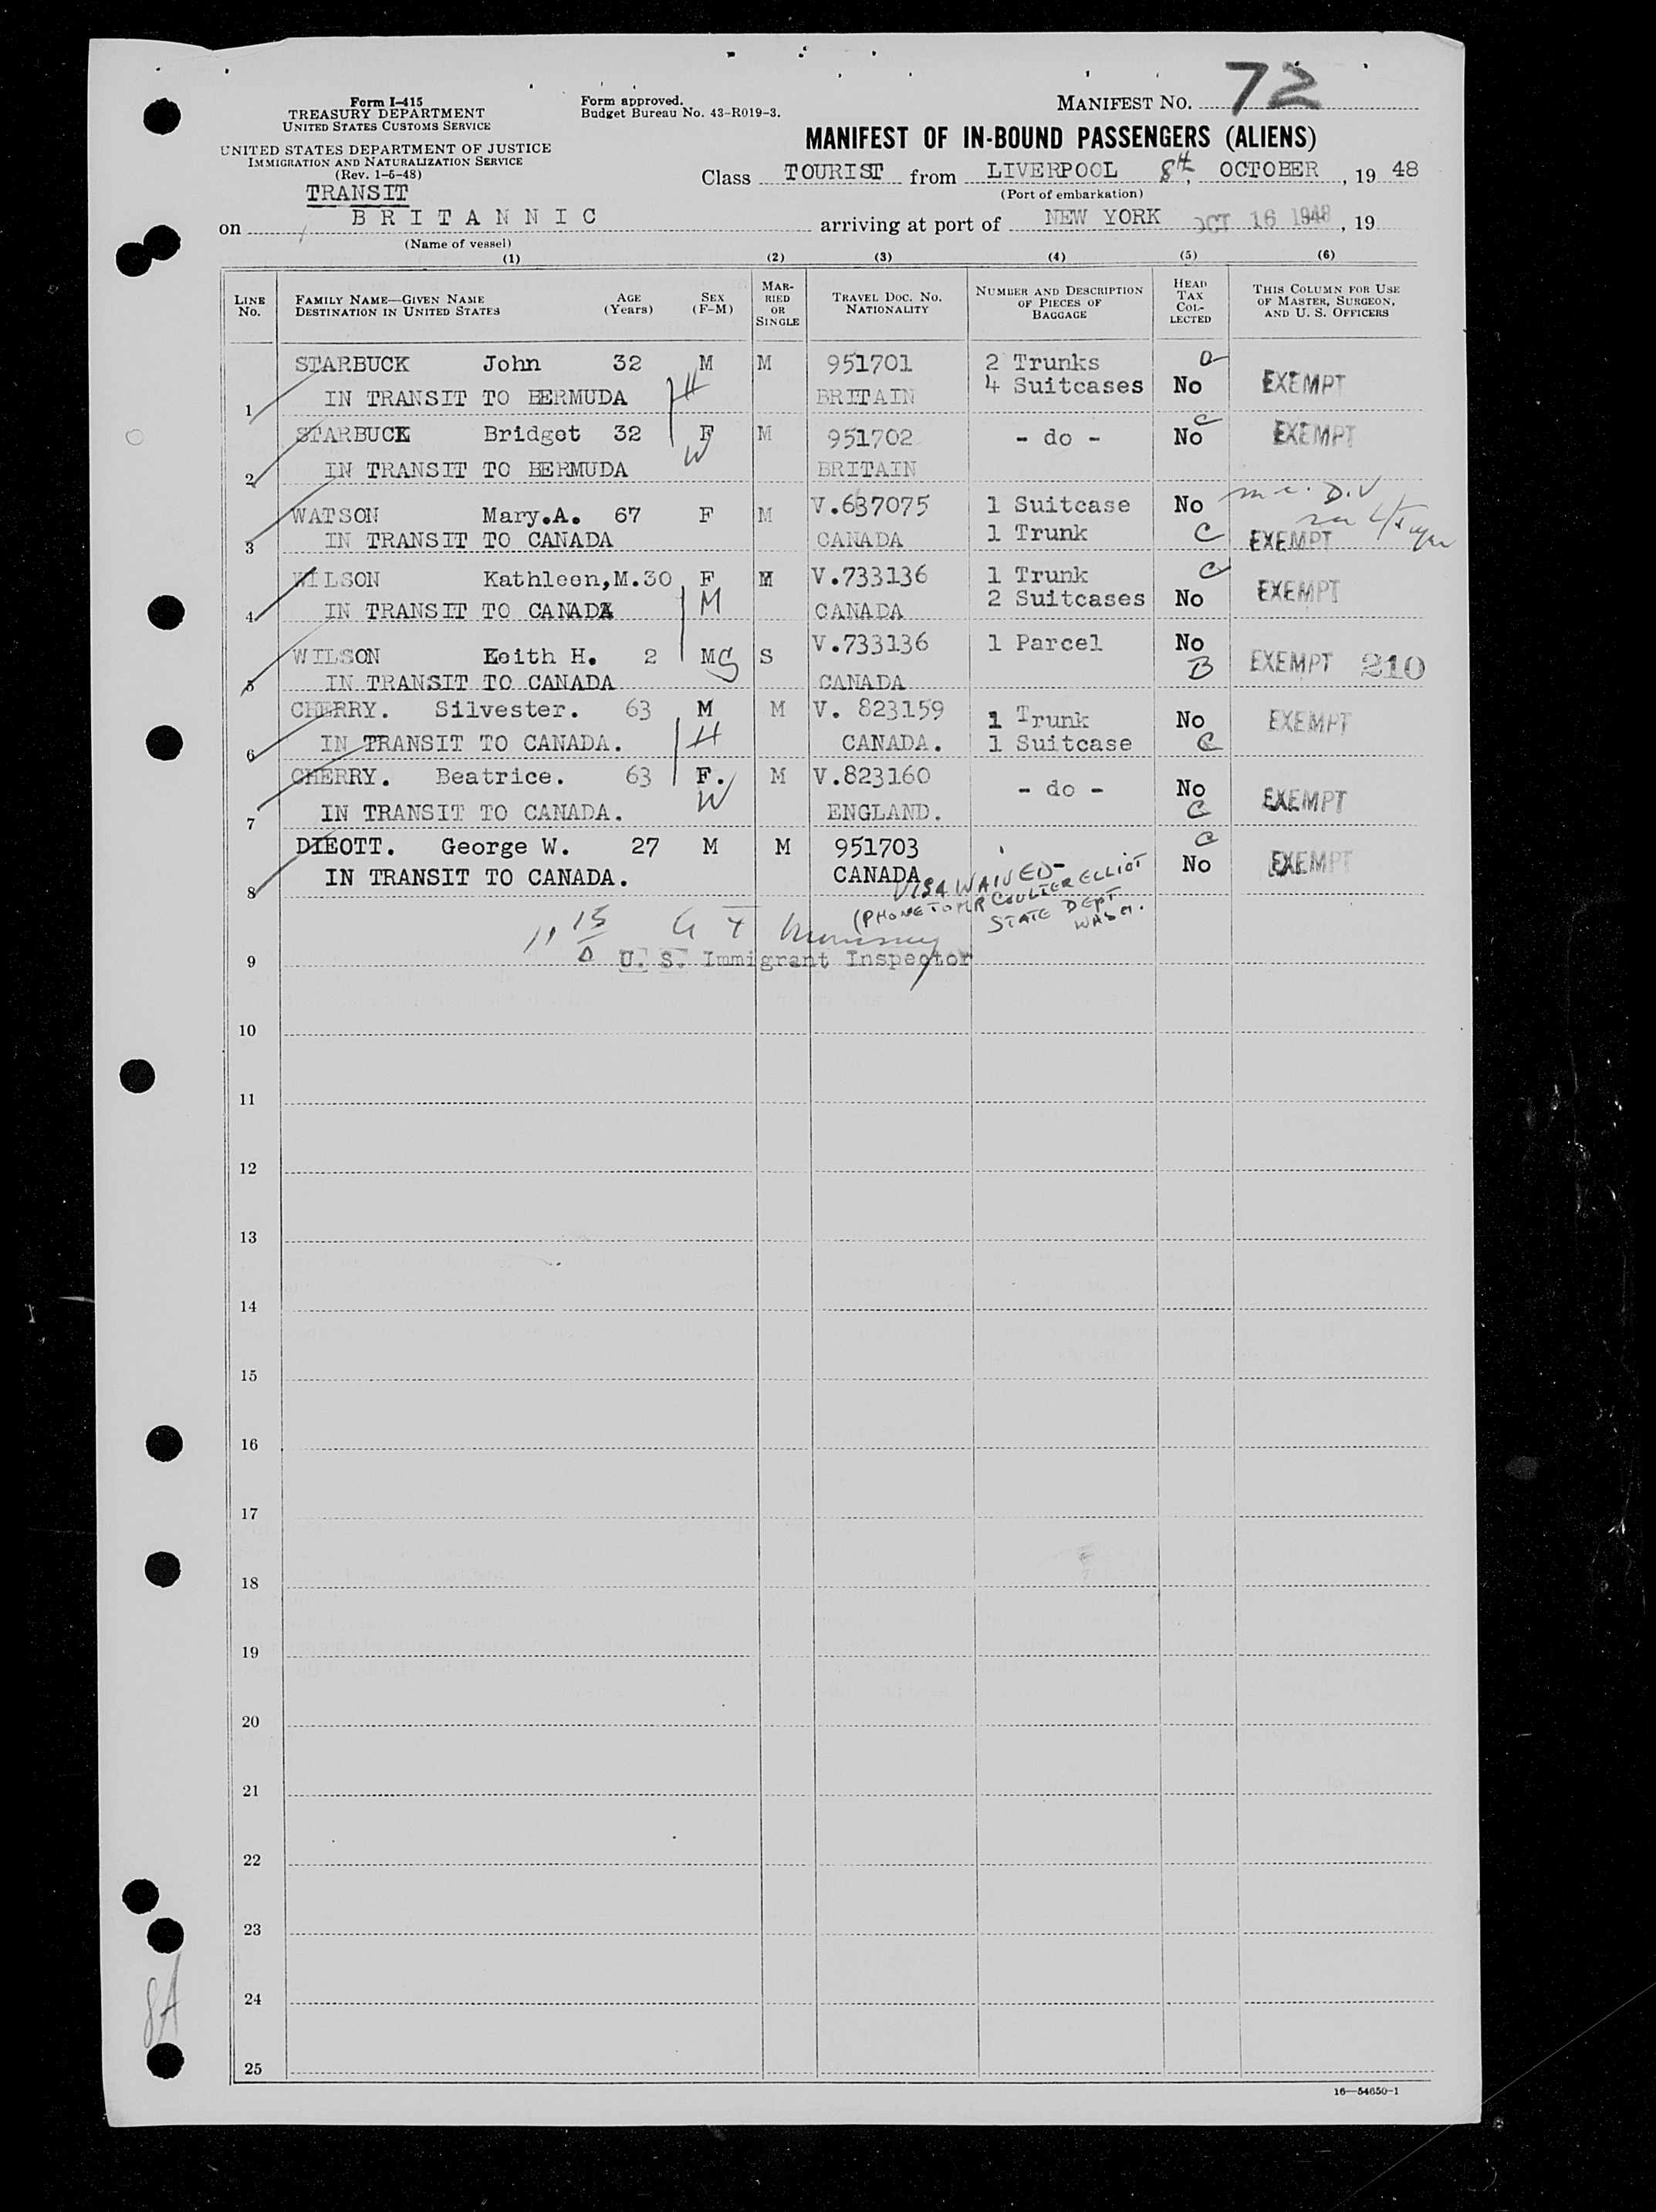 Form I-415
TREASURY DEPARTMENT
UNITED STATES CUSTOMS SERVICE
UNITED STATES DEPARTMENT OF JUSTICE
IMMIGRATION AND NATURALIZATION SERVICE
(Rev. 1-5-48)
TRANSIT
Form approved.
Budget Bureau No. 43-R019-3.
MANIFEST NO. 72
MANIFEST OF IN-BOUND PASSENGERS (ALIENS)
Class TOURIST from LIVERPOOL 8th, OCTOBER, 19 48
(Port of embarkation)
on BRITANNIC arriving at port of NEW YORK OCT 16 1948, 19
(Name of vessel)
(1) (2) (3) (4) (5) (6)
LINE No. FAMILY NAME—GIVEN NAME DESTINATION IN UNITED STATES AGE (Years) SEX (F-M) MARRIED OR SINGLE TRAVEL DOC. NO. NATIONALITY NUMBER AND DESCRIPTION OF PIECES OF BAGGAGE HEAD TAX COLLECTED THIS COLUMN FOR USE OF MASTER, SURGEON, AND U. S. OFFICERS
STARBUCK John 32 M M 951701 2 Trunks
1 IN TRANSIT TO BERMUDA H BRITAIN 4 Suitcases No EXEMPT
STARBUCK Bridget 32 F M 951702 - do - No C EXEMPT
2 IN TRANSIT TO BERMUDA W BRITAIN
WATSON Mary.A. 67 F M V.637075 1 Suitcase No
3 IN TRANSIT TO CANADA CANADA 1 Trunk C EXEMPT
WILSON Kathleen,M.30 F M V.733136 1 Trunk C
4 IN TRANSIT TO CANADA M CANADA 2 Suitcases No EXEMPT
WILSON Keith H. 2 M S S V.733136 1 Parcel No
5 IN TRANSIT TO CANADA CANADA B EXEMPT 210
CHERRY. Silvester. 63 M M V. 823159 1 Trunk No EXEMPT
6 IN TRANSIT TO CANADA. H CANADA. 1 Suitcase C
CHERRY. Beatrice. 63 F. M V.823160 - do - No EXEMPT
7 IN TRANSIT TO CANADA. W ENGLAND. C
DIEOTT. George W. 27 M M 951703 C
8 IN TRANSIT TO CANADA. CANADA No EXEMPT
VISA WAIVED-
(PHONE TO MR COULTER ELLIOT
STATE DEPT
WASH.
9 U. S. Immigrant Inspector
10
11
12
13
14
15
16
17
18
19
20
21
22
23
24
25
8A
16—54650-1